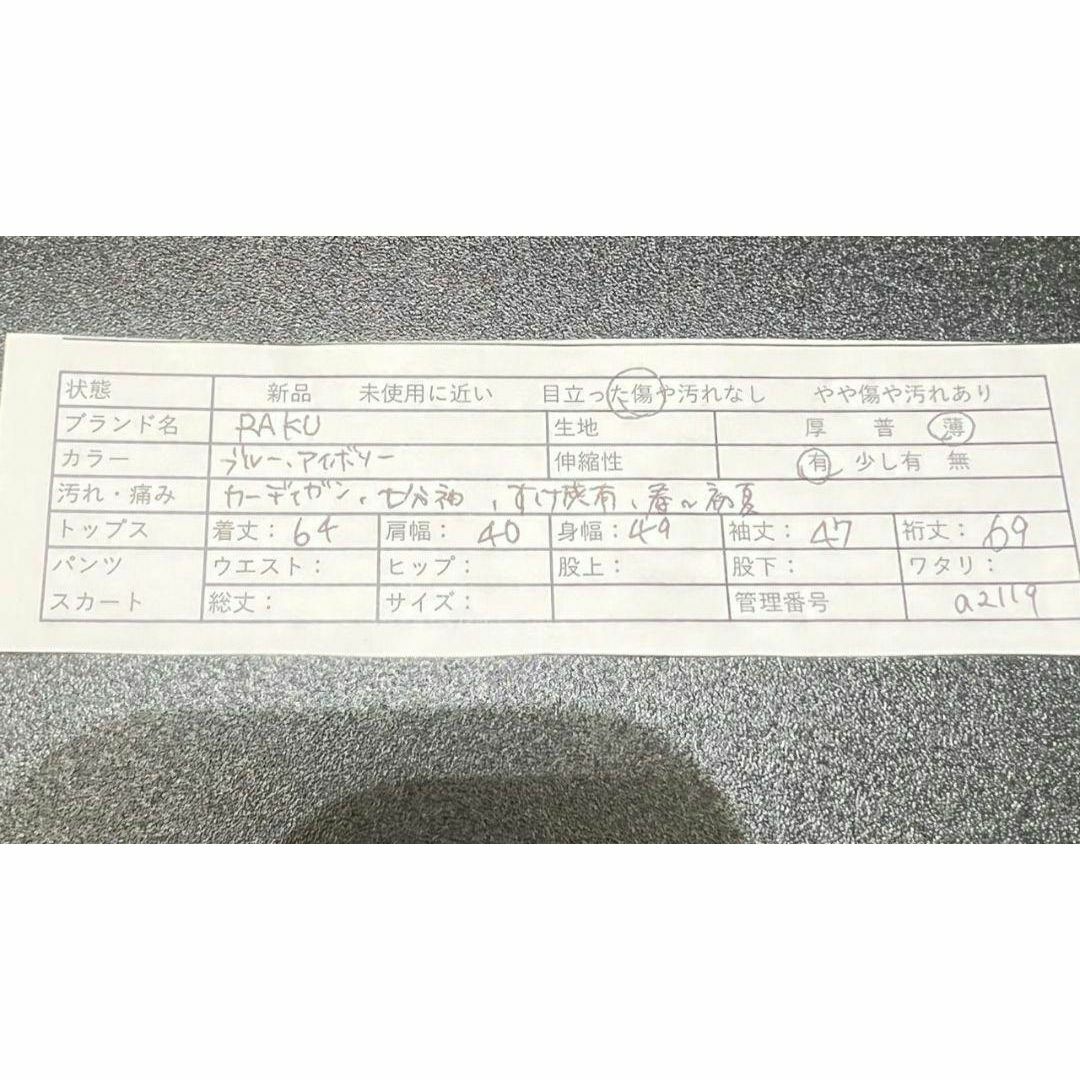 状態 新品 未使用に近い 目立った傷や汚れなし やや傷や汚れあり
ブランド名 RAKU 生地 厚 普 薄
カラー ブルー、アイボリー 伸縮性 有 少し有 無
汚れ・痛み カーディガン、七分袖、すけ感有、春〜初夏
トップス 着丈：64 肩幅：40 身幅：49 袖丈：47 裄丈：69
パンツ ウエスト： ヒップ： 股上： 股下： ワタリ：
スカート 総丈： サイズ： 管理番号 a2119